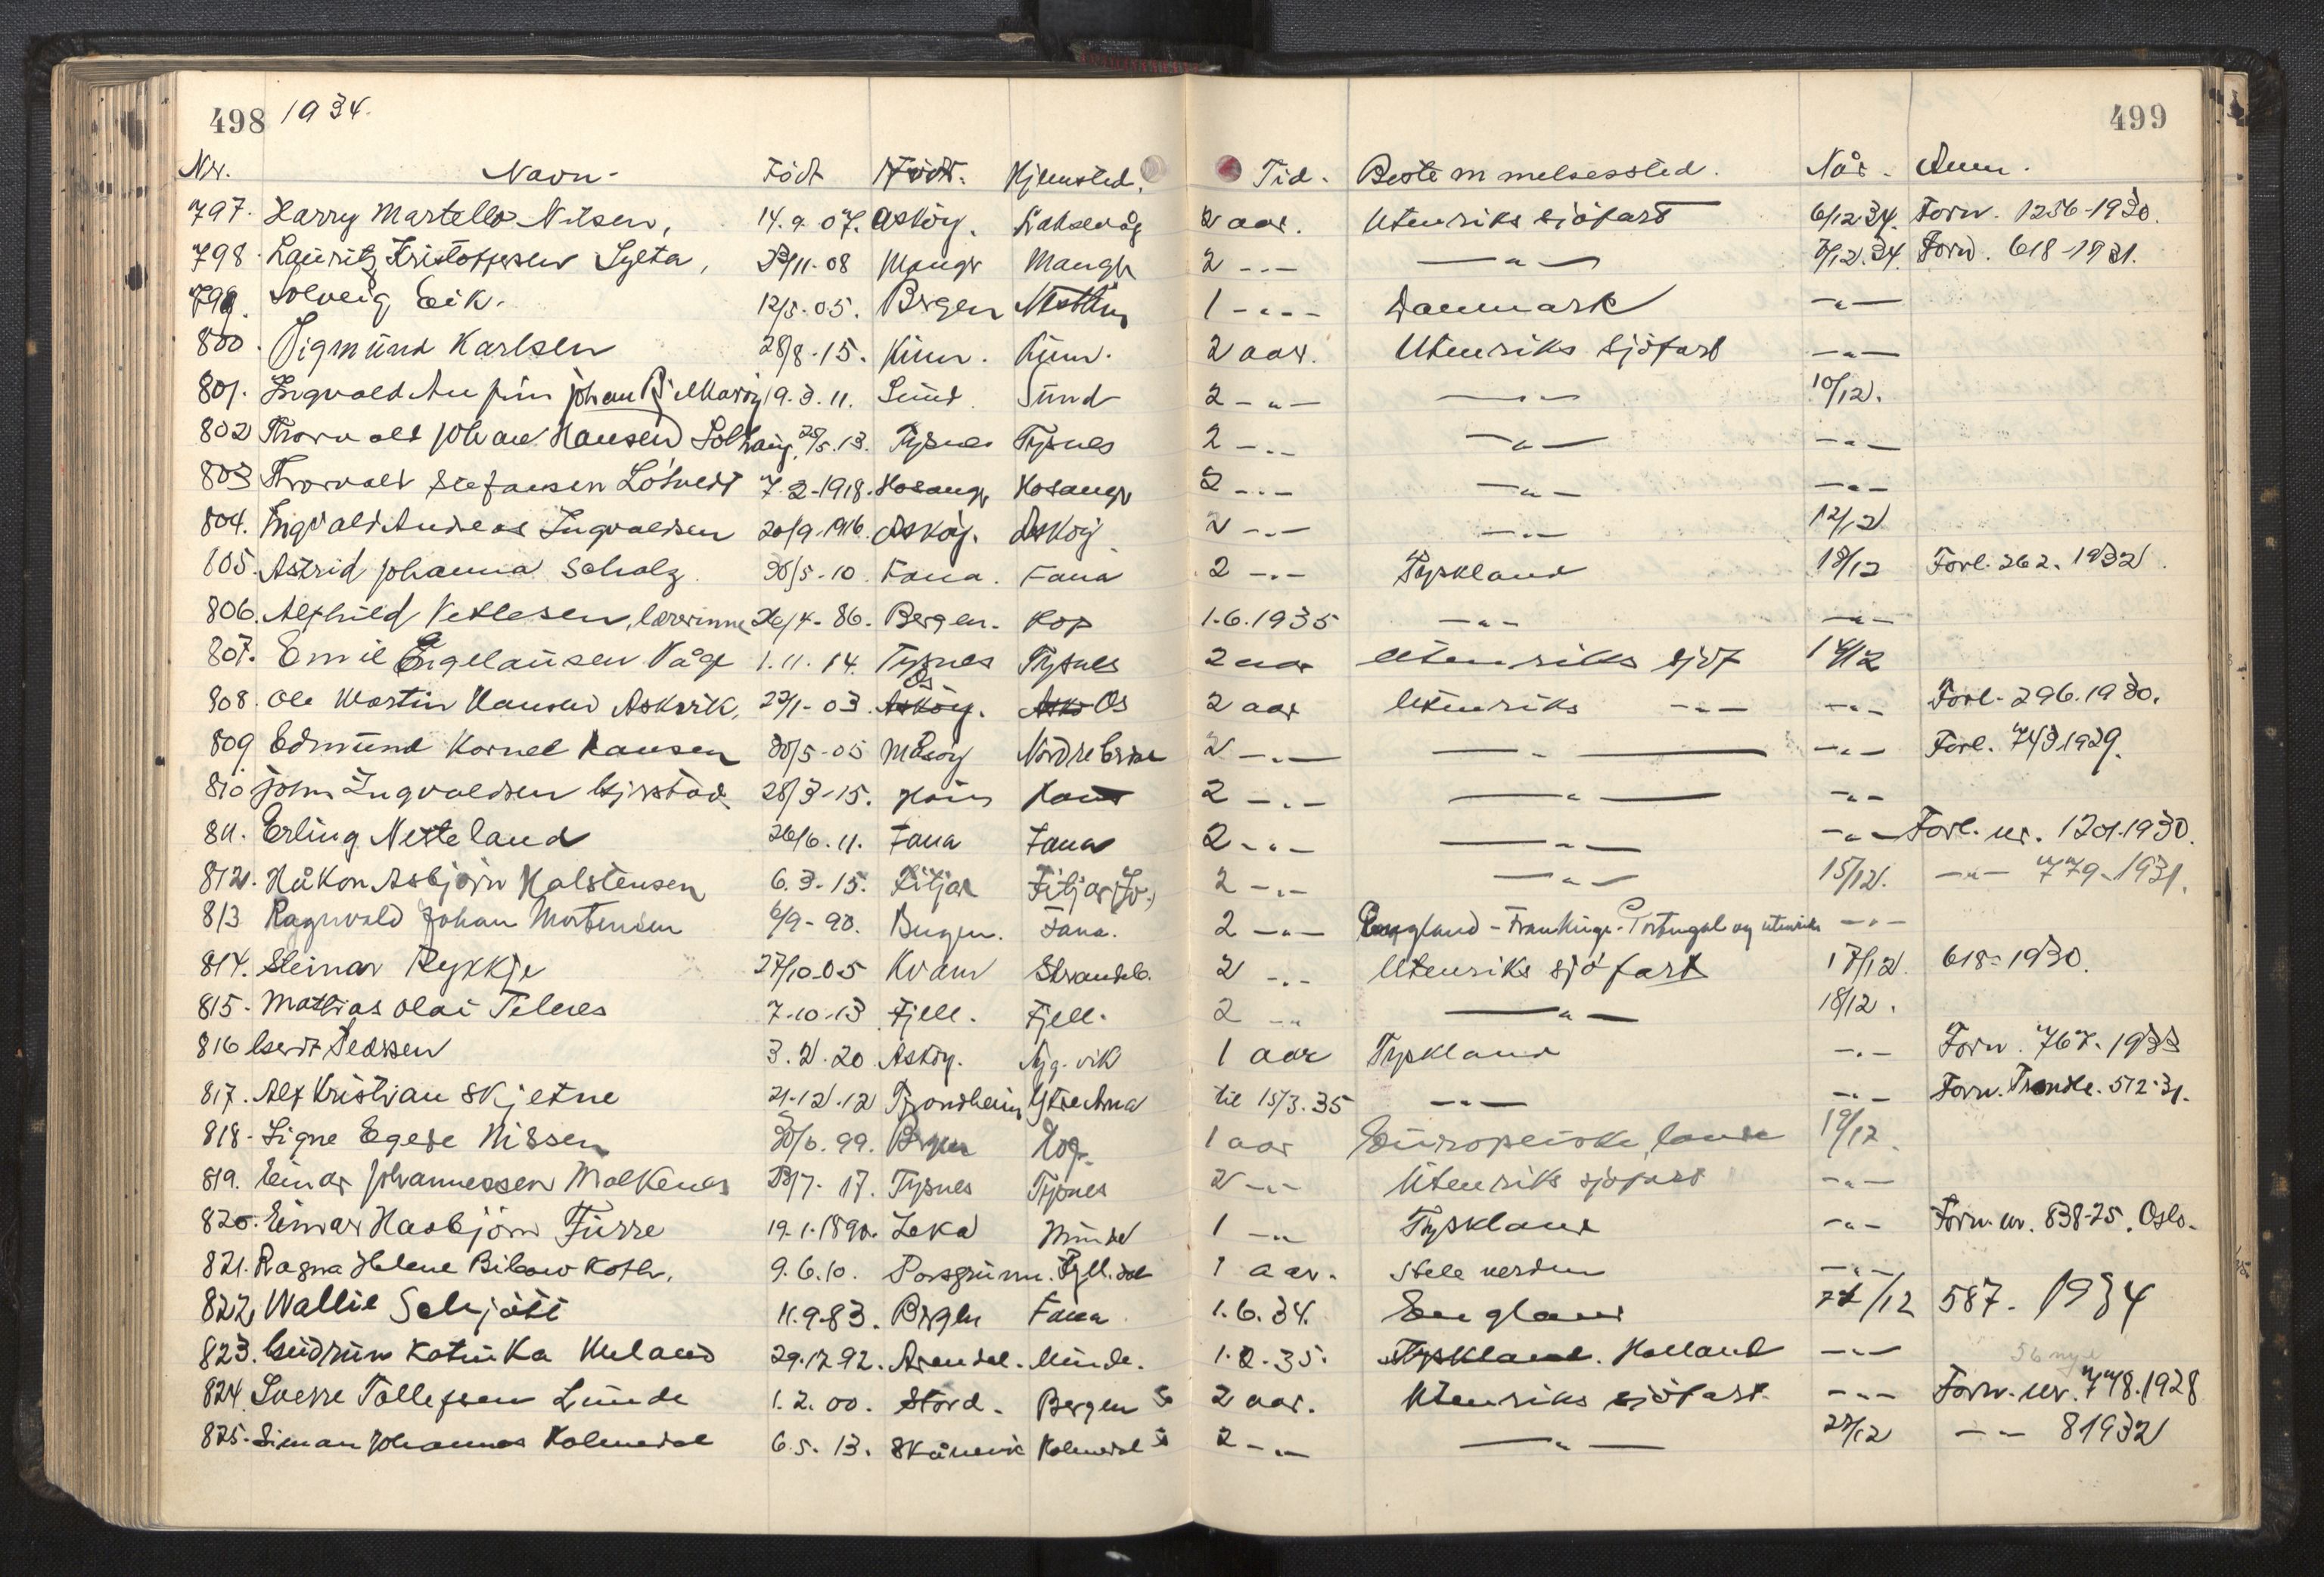 498 1934. 499
Nr. Navn. Födt Födt. Hjemsted. Tid. Bestemmelsessted. Når. Anm.
797. Harry Martello Nilsen, 14.9.07. Asköy. Laksevåg 2 aar. Utenriks sjöfart 6/12 34. Forn. 1256-1930.
798. Lauritz Kristoffersen Sylta, /11-08 Manger Manger 2 -„- -„- /12.34. Forn. 618-1931.
799. Solveig Eik. 12/5-05. Bergen 1 -„- Danmark -„-
800. Sigmund Karlsen 28/8-15. Kinn. Kinn. 2 aar. Utenriks sjöfart -„-
801. Ingvald Johan 19.3.11. Sund Sund 2 -„- -„- 10/12.
802 Thorvald Johan Hansen Solhaug, 28/5.13. Tysnes Tysnes 2 -„- -„- -„-
803 Thorvald Stefansen Lötvedt 7.2-1918. Hosanger Hosanger 2 -„- -„- -„-
804. Ingvald Andreas Ingvaldsen 20/9-1916. Asköy. Asköy 2 -„- -„- 12/12
805. Astrid Johanna Scholz 30/5-10. Fana. Fana 2 -„- Tyskland 13/12 Forl. 262. 1932.
806. Alfhild Vetlesen, lærerinne 26/4-86. Bergen. Kop 1.6.1935 -„- -„-
807. Emil Engelausen Våge 1.11.14. Tysnes Tysnes 2 aar Utenriks sjöf 14/12
808. Ole Martin Hansen Askvik, 23/1-03. Asköy. Os Os 2 aar Utenriks -„- -„- Forl. 296.1930.
809 Edmund Kornel Hansen 30/5-05 Måsöy 2 -„- -„- -„- Forl. 743 1929.
810 John Ingvaldsen Gjerstad 28/3-15. Haus Haus 2 -„- -„- -„-
811. Erling Nesteland 26/6.11. Fana Fana 2 -„- -„- -„- Forl. nr. 1201.1930.
812. Håkon Asbjörn Halstensen 6.3-15. Fitjar Fitjar 2 -„- -„- 15/12. -„- 779-1931.
813 Ragnvald Johan Mortensen 6/9-90. Bergen. Fana. 2 -„- England - Frankrige - Portugal og utenriks -„-
814. Steinar Rykkje 27/10-05 Kvam Strandeb. 2 -„- Utenriks sjöfart 17/12. 618-1930.
815. Mathias Olai Telnes 7-10-13 Fjell. Fjell. 2 -„- -„- 18/12.
816 Gerdt Pedersen 3.2.20 Asköy. 1 aar Tyskland -„- Forn. 767. 1933
817. Alf Kristian Skjetne 21-12-12 Trondheim Ytre Arna til 15/3.35 -„- -„- Forn. Trondh. 512-31.
818. Signe Egede Nissen 30/6.99. Bergen Kop. 1 aar Europeiske lande 19/12.
819. Einar Johannessen Malkenes /7-17. Tysnes Tysnes 2 -„- Utenriks sjöfart -„-
820. Einar Hasbjörn Furre 19.1.1890. Leka Minde 1 -„- Tyskland -„- Forn nr. 838-25. Oslo.
821. Ragna Helene Bilow Koth. 9.6.10. Porsgrunn. 1 aar. Hele verden -„-
822. Wallie Schjött 11.9-83. Bergen Fana 1.6.34. England 21/12 587. 1934
823. Gudrun Katinka Uland 29.12 92. Arendal. Minde. 1.2.35. Tyskland. Holland -„-
56 nye
824. Sverre Tollefsen Lunde 1.2.00. Stord. Bergen 2 aar. Utenriks sjöfart -„- Forn. nr. 778.1928
825. Simon Johannes Holmedal 6.5.13. Skånevik Holmedal 2 -„- -„- 27/12 -„- 81932